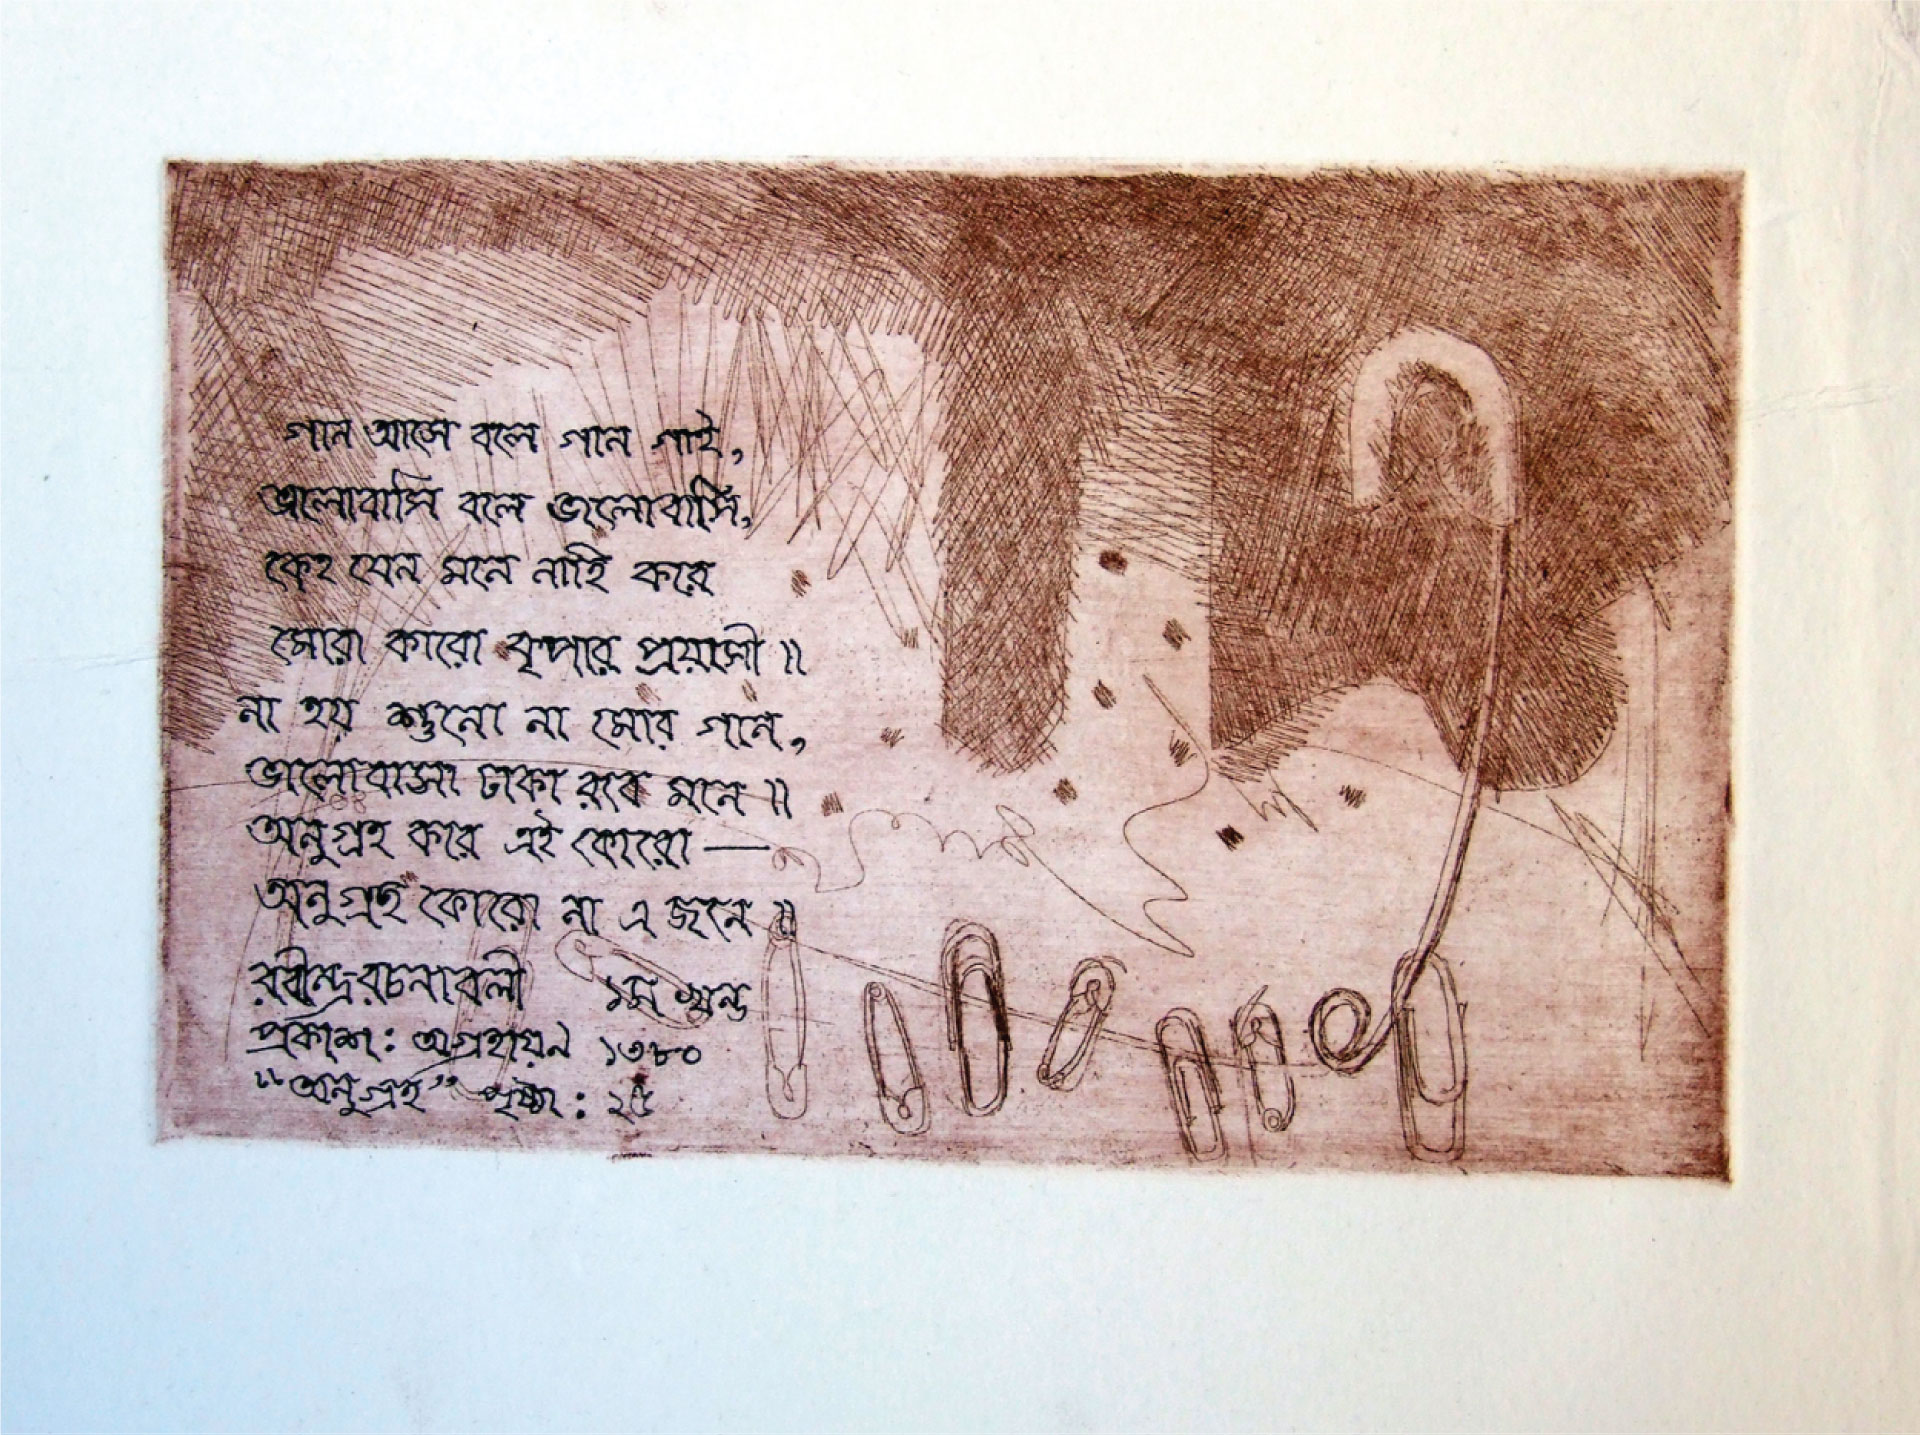 গান আসে বলে গান গাই,
ভালোবাসি বলে ভালোবাসি,
কেহ যেন মনে নাহি করে
মোরা কারো কৃপার প্রয়াসী ॥
না হয় শুনো না মোর গান,
ভালোবাসা ঢাকা রবে মনে ॥
অনুগ্রহ করে এই কোরো —
অনুগ্রহ কোরো না এ জনে ॥
রবীন্দ্ররচনাবলী ১ম খন্ড
প্রকাশ: অগ্রহায়ন ১৩৮০
"অনুগ্রহ" পৃষ্ঠা: ২৫